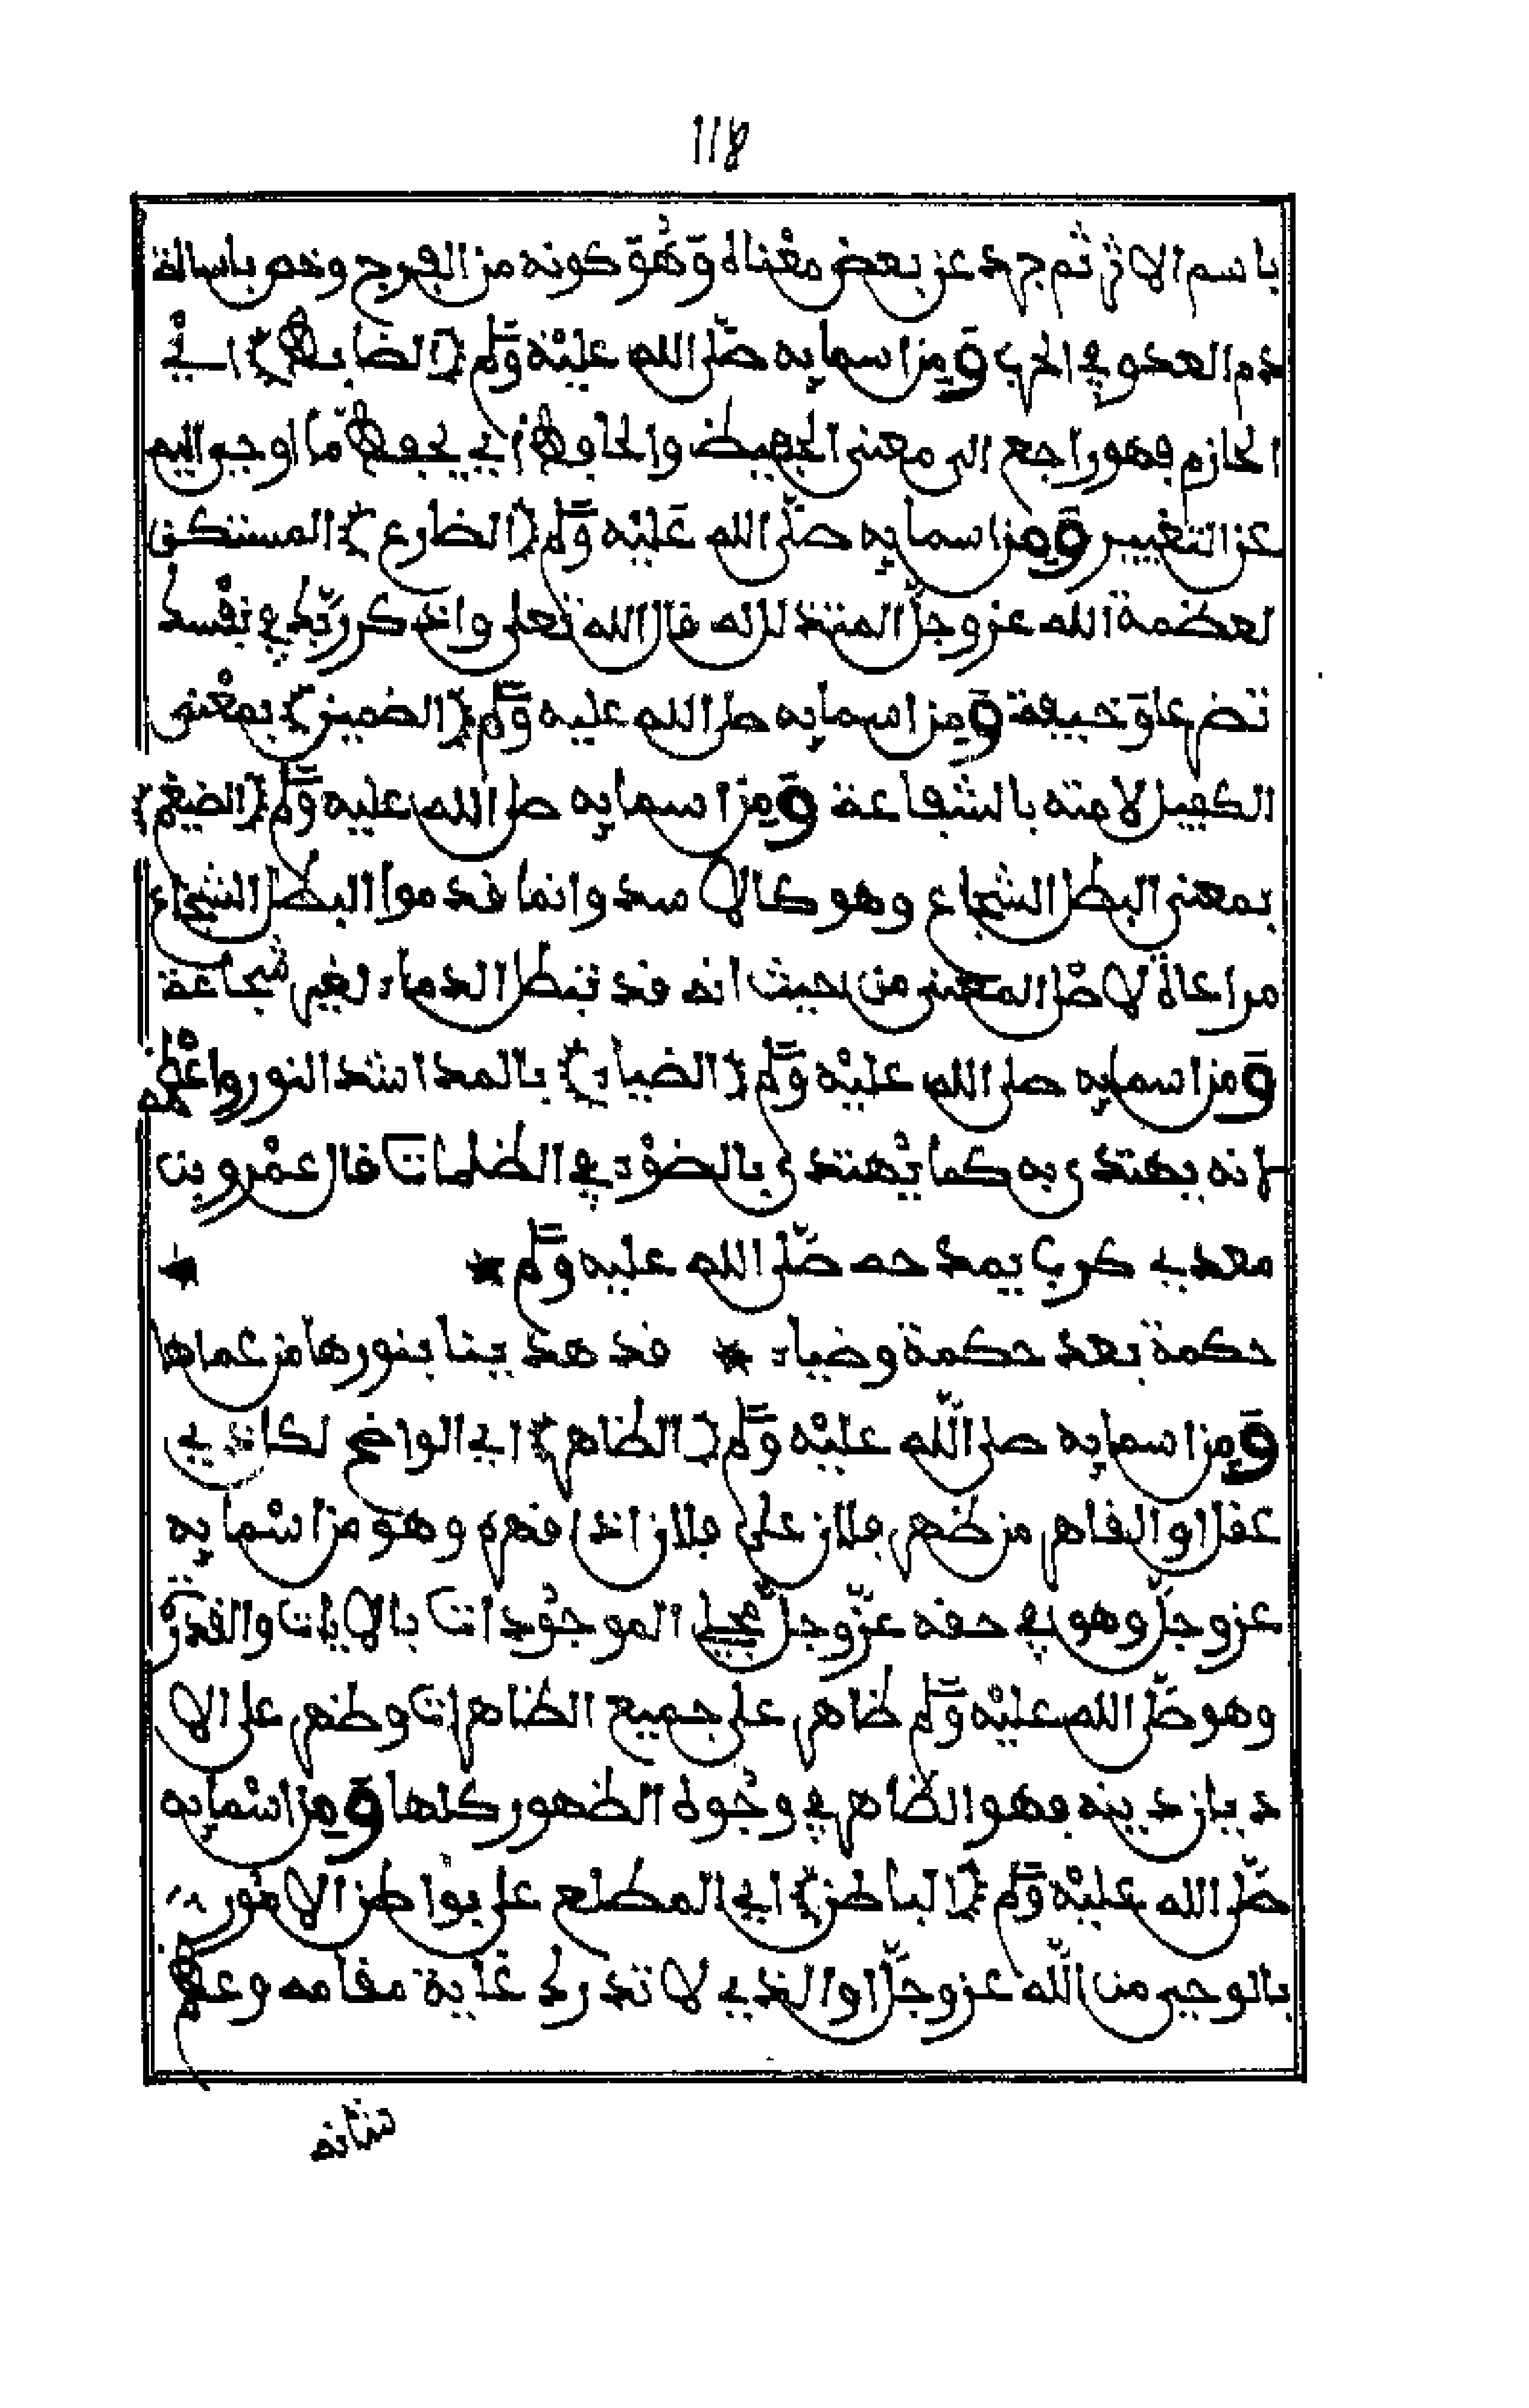 118
باسم الاثر ثم جرد عن بعض معناه وهو كونه من الفرج وخص باسالة
دم العدو في الحرب ومن اسمايه صلى الله عليه وسلم (الضابط) اي
الحازم فهو راجع الى معنى الحفيظ والحافظ اي يحفظ ما اوحي اليه
عن التغيير ومن اسمايه صلى الله عليه وسلم (الضارع) المستكن
لعظمة الله عز وجل المتذلل له قال الله تعلى واذكر ربك في نفسك
تضرعا وخيفة ومن اسمايه صلى الله عليه وسلم (الضمين) بمعنى
الكفيل لامته بالشفاعة ومن اسمايه صلى الله عليه وسلم (الضيغم)
بمعنى البطل الشجاع وهو كالاسد وانما قدموا البطل الشجاع
مراعاة لاصل المعنى من حيث انه قد تبطل الدماء لغير شجاعة
ومن اسمايه صلى الله عليه وسلم (الضياء) بالمد اشد النور واعظم
لانه يهتدى به كما يهتدى بالضوء في الظلمات قال عمرو بن
معدي كرب يمدحه صلى الله عليه وسلم *
حكمة بعد حكمة وضياء * قد هدينا بنورها من عماها
ومن اسمايه صلى الله عليه وسلم (الظاهر) اي الواضح لكل ذي
عقل او القاهر من ظهر فلان على فلان اذا قهره وهو من اسمايه
عز وجل وهو في حقه عز وجل الموجودات بالايات والقدرة
وهو صلى الله عليه وسلم ظاهر على جميع الظاهرات وظهر على الا
ديان دينه فهو الظاهر في وجوه الظهور كلها ومن اسمايه
صلى الله عليه وسلم (الباطن) اي المطلع على بواطن الامور
بالوحي من الله عز وجل او الذي لا تدرك غاية مقامه وعظم
شانه